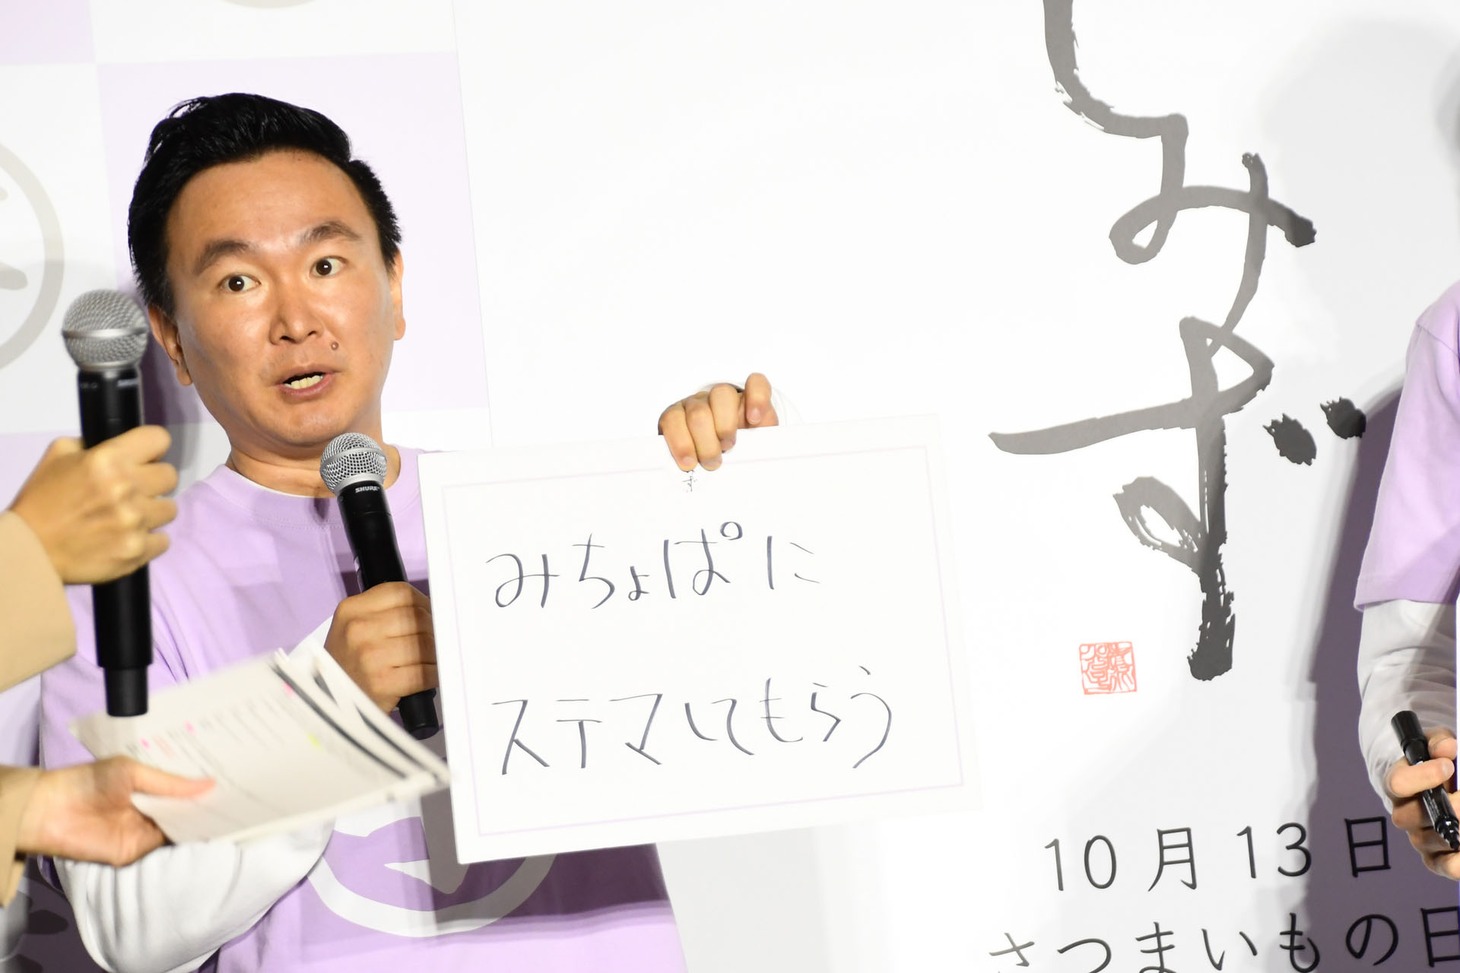 みちょぱに
ステマしてもらう
10月13日
さつまいもの日
SHURE